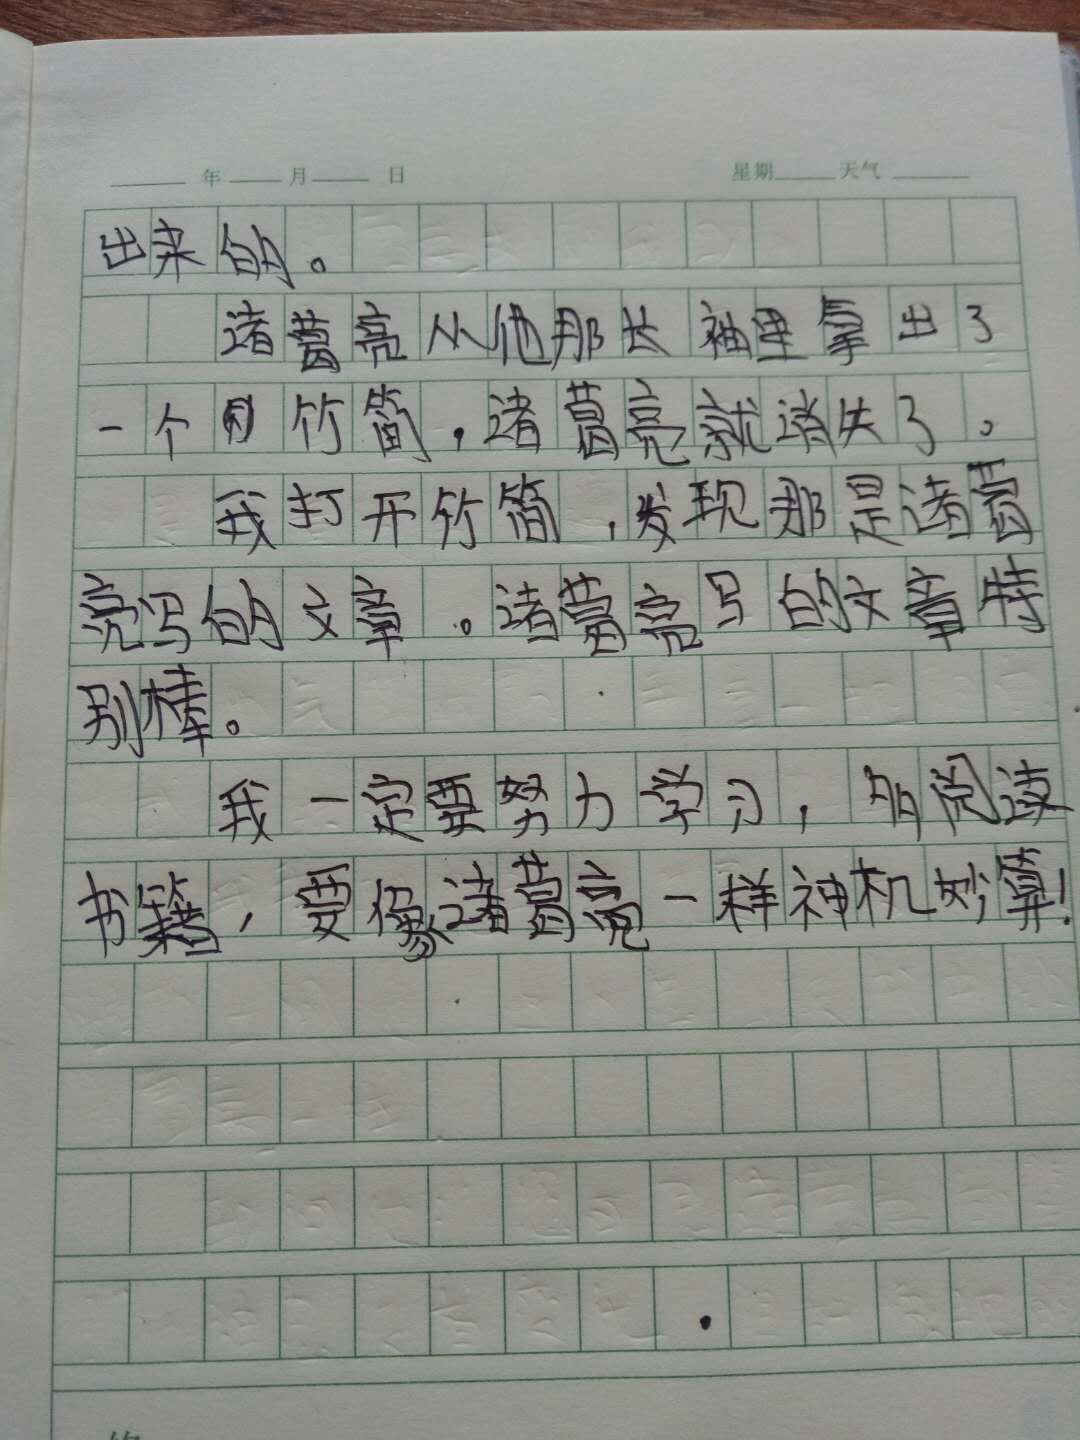 年 月 日 星期 天气
出来的。
诸葛亮从他那长袖里拿出了
一个竹简，诸葛亮就消失了。
我打开竹简，发现那是诸葛
亮写的文章。诸葛亮写的文章特
别棒。
我一定要努力学习，多阅读
书籍，要像诸葛亮一样神机妙算！